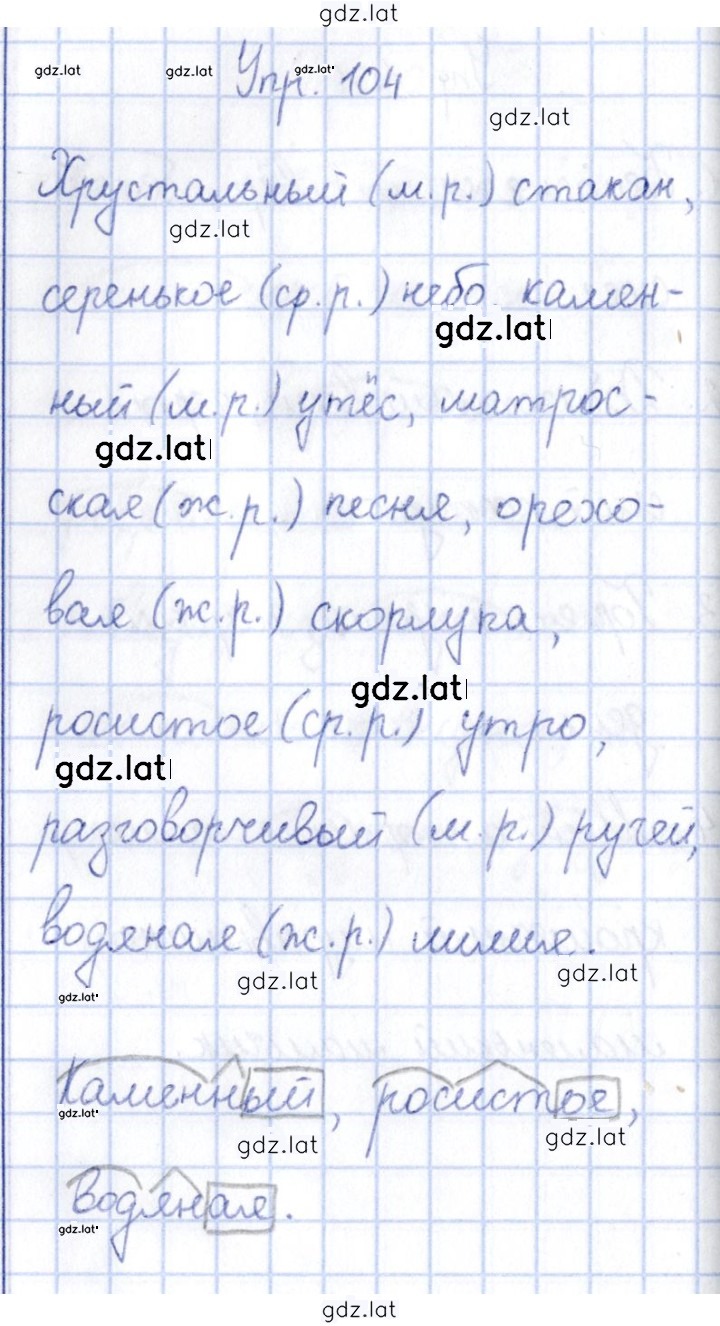 gdz.lat
gdz.lat gdz.lat Упр. 104 gdz.lat
gdz.lat
Хрустальный (м.р.) стакан,
gdz.lat
серенькое (ср.р.) небо камен-
gdz.lat
ный (м.р.) утёс, матрос-
gdz.lat
ская (ж.р.) песня, орехо-
вая (ж.р.) скорлупа,
gdz.lat
росистое (ср.р.) утро,
gdz.lat
разговорчивый (м.р.) ручей,
водяная (ж.р.) лилия.
gdz.lat gdz.lat gdz.lat
Каменный, росистое,
gdz.lat gdz.lat gdz.lat
водяная.
gdz.lat
gdz.lat